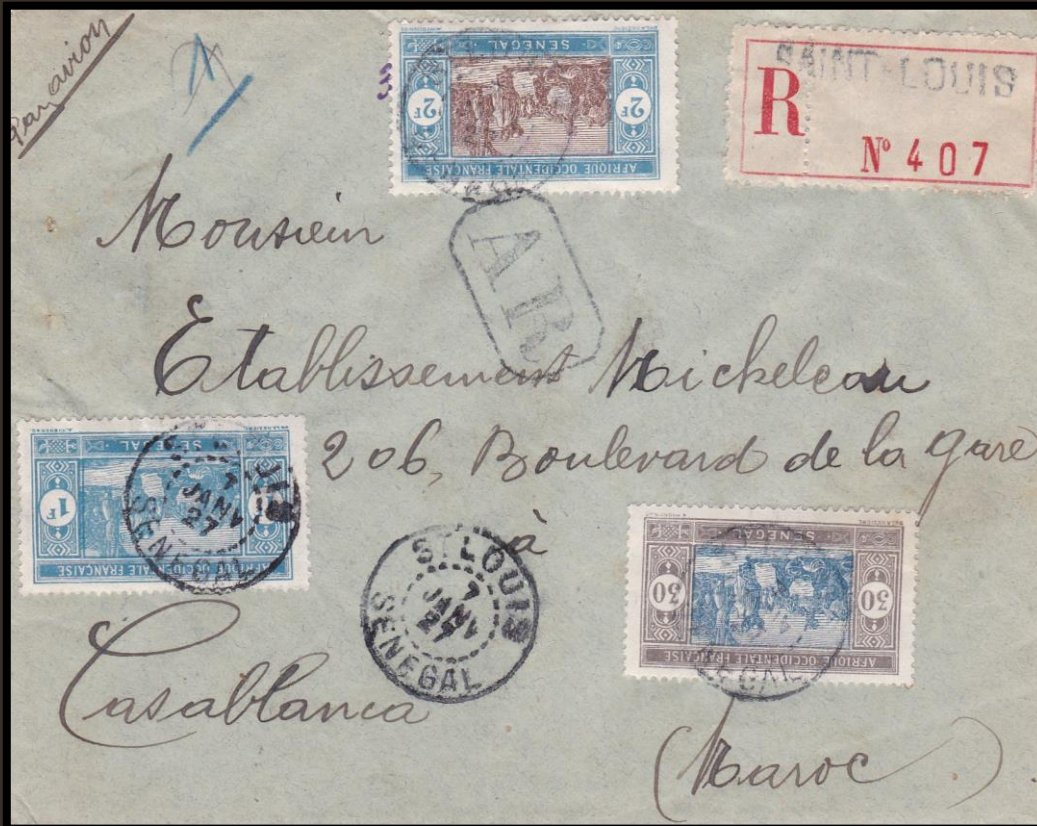 Par avion
SENEGAL
2F 2F
AFRIQUE OCCIDENTALE FRANÇAISE
SAINT-LOUIS
R
Nº 407
Monsieur
AR
Etablissement Micheleau
206, Boulevard de la gare
à
SENEGAL
1F
AFRIQUE OCCIDENTALE FRANÇAISE
7
JANV
27
SENEGAL
ST LOUIS
7
JANV
27
SENEGAL
SENEGAL
30 30
AFRIQUE OCCIDENTALE FRANÇAISE
SENEGAL
Casablanca
(Maroc)